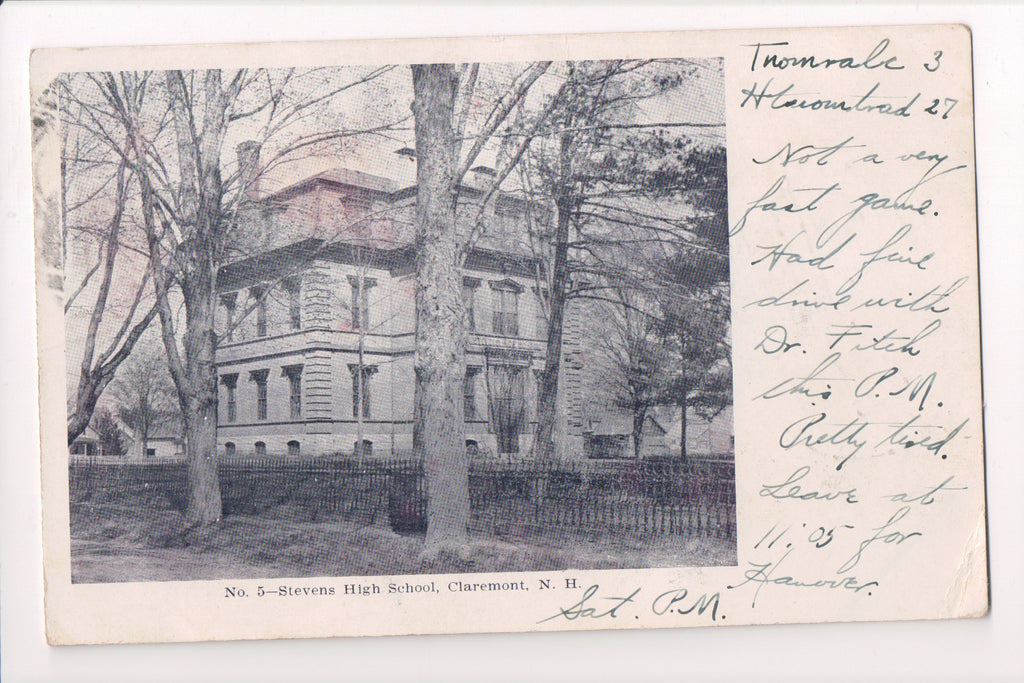 3
27
Not a very
fast game.
Had fine
drive with
Dr. Fitch
this P.M.
Pretty tired.
Leave at
11:05 for
Hanover.
Sat. P.M.
No. 5—Stevens High School, Claremont, N. H.